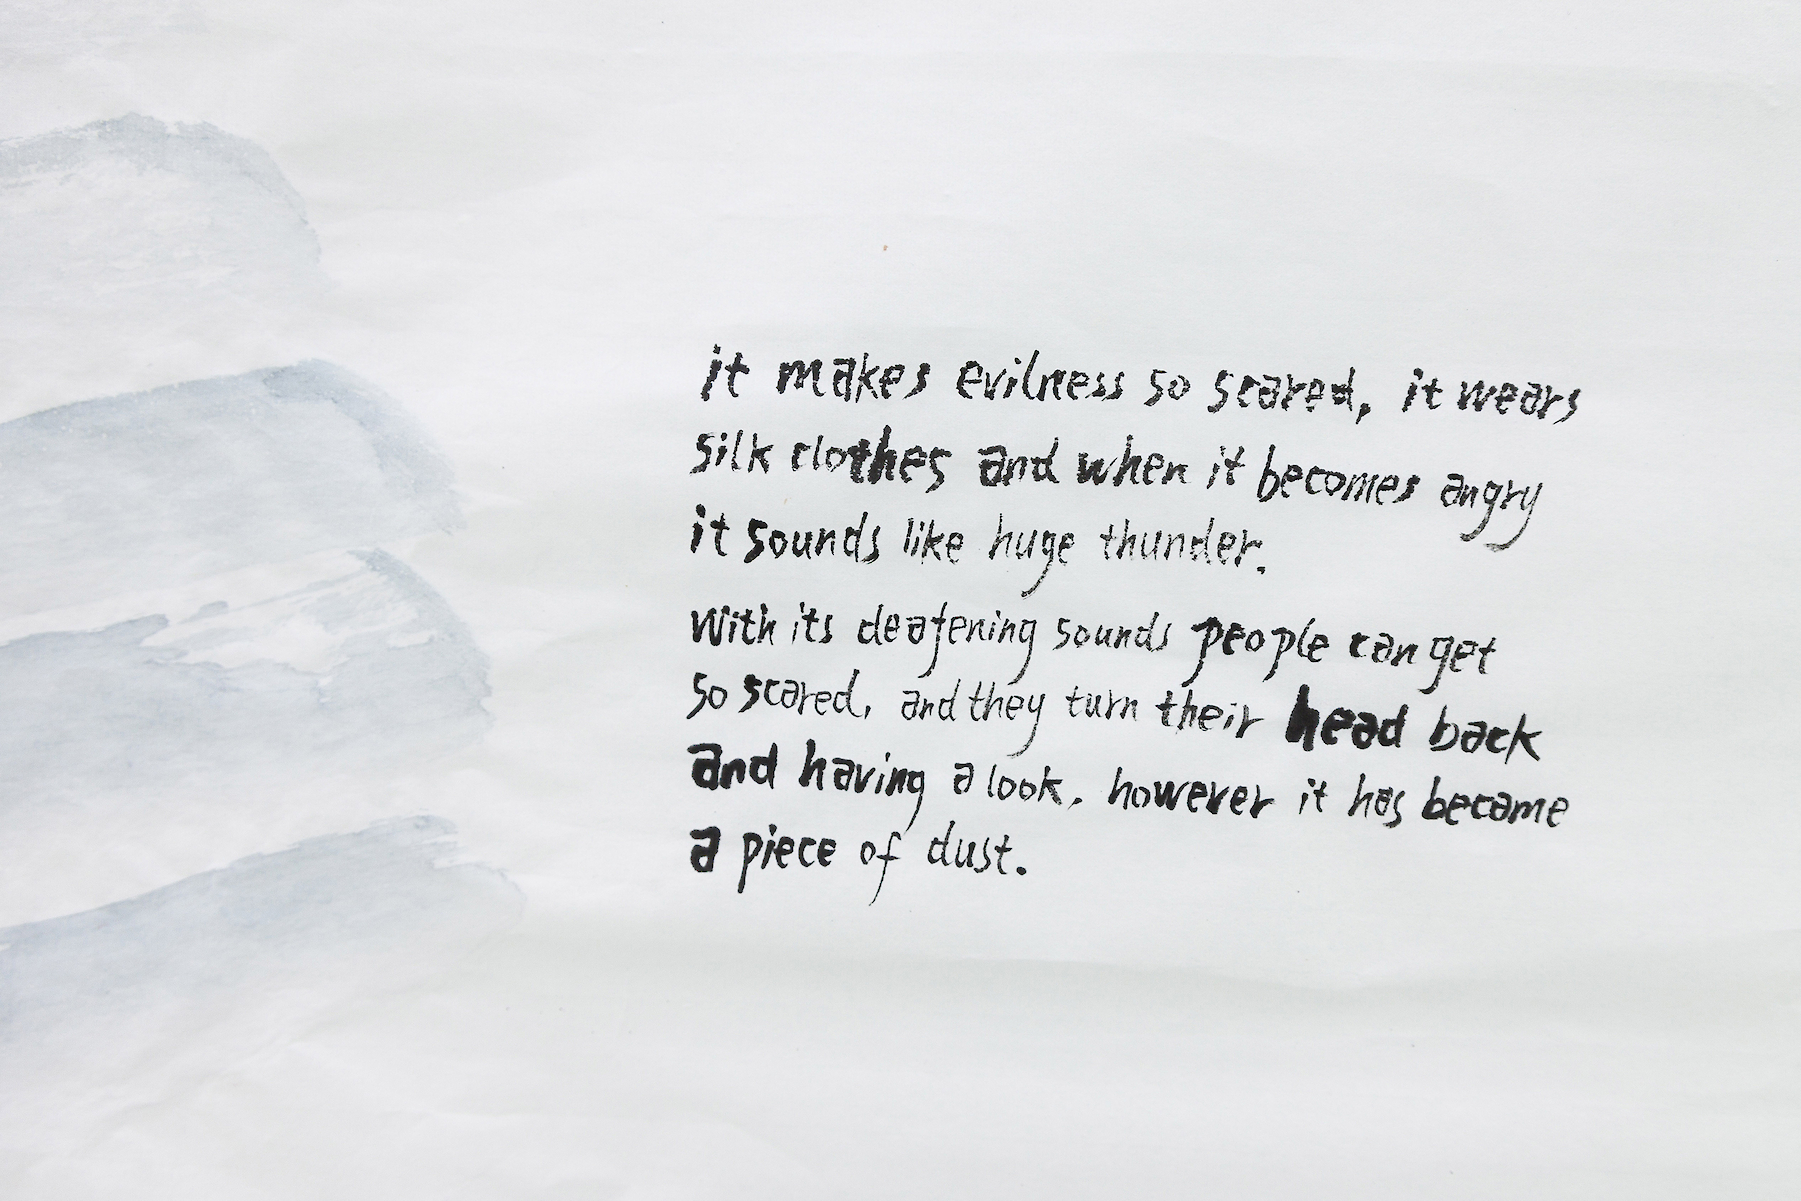 it makes evilness so scared, it wears
silk clothes and when it becomes angry
it sounds like huge thunder.
With its deafening sounds people can get
so scared, and they turn their head back
and having a look, however it has became
a piece of dust.